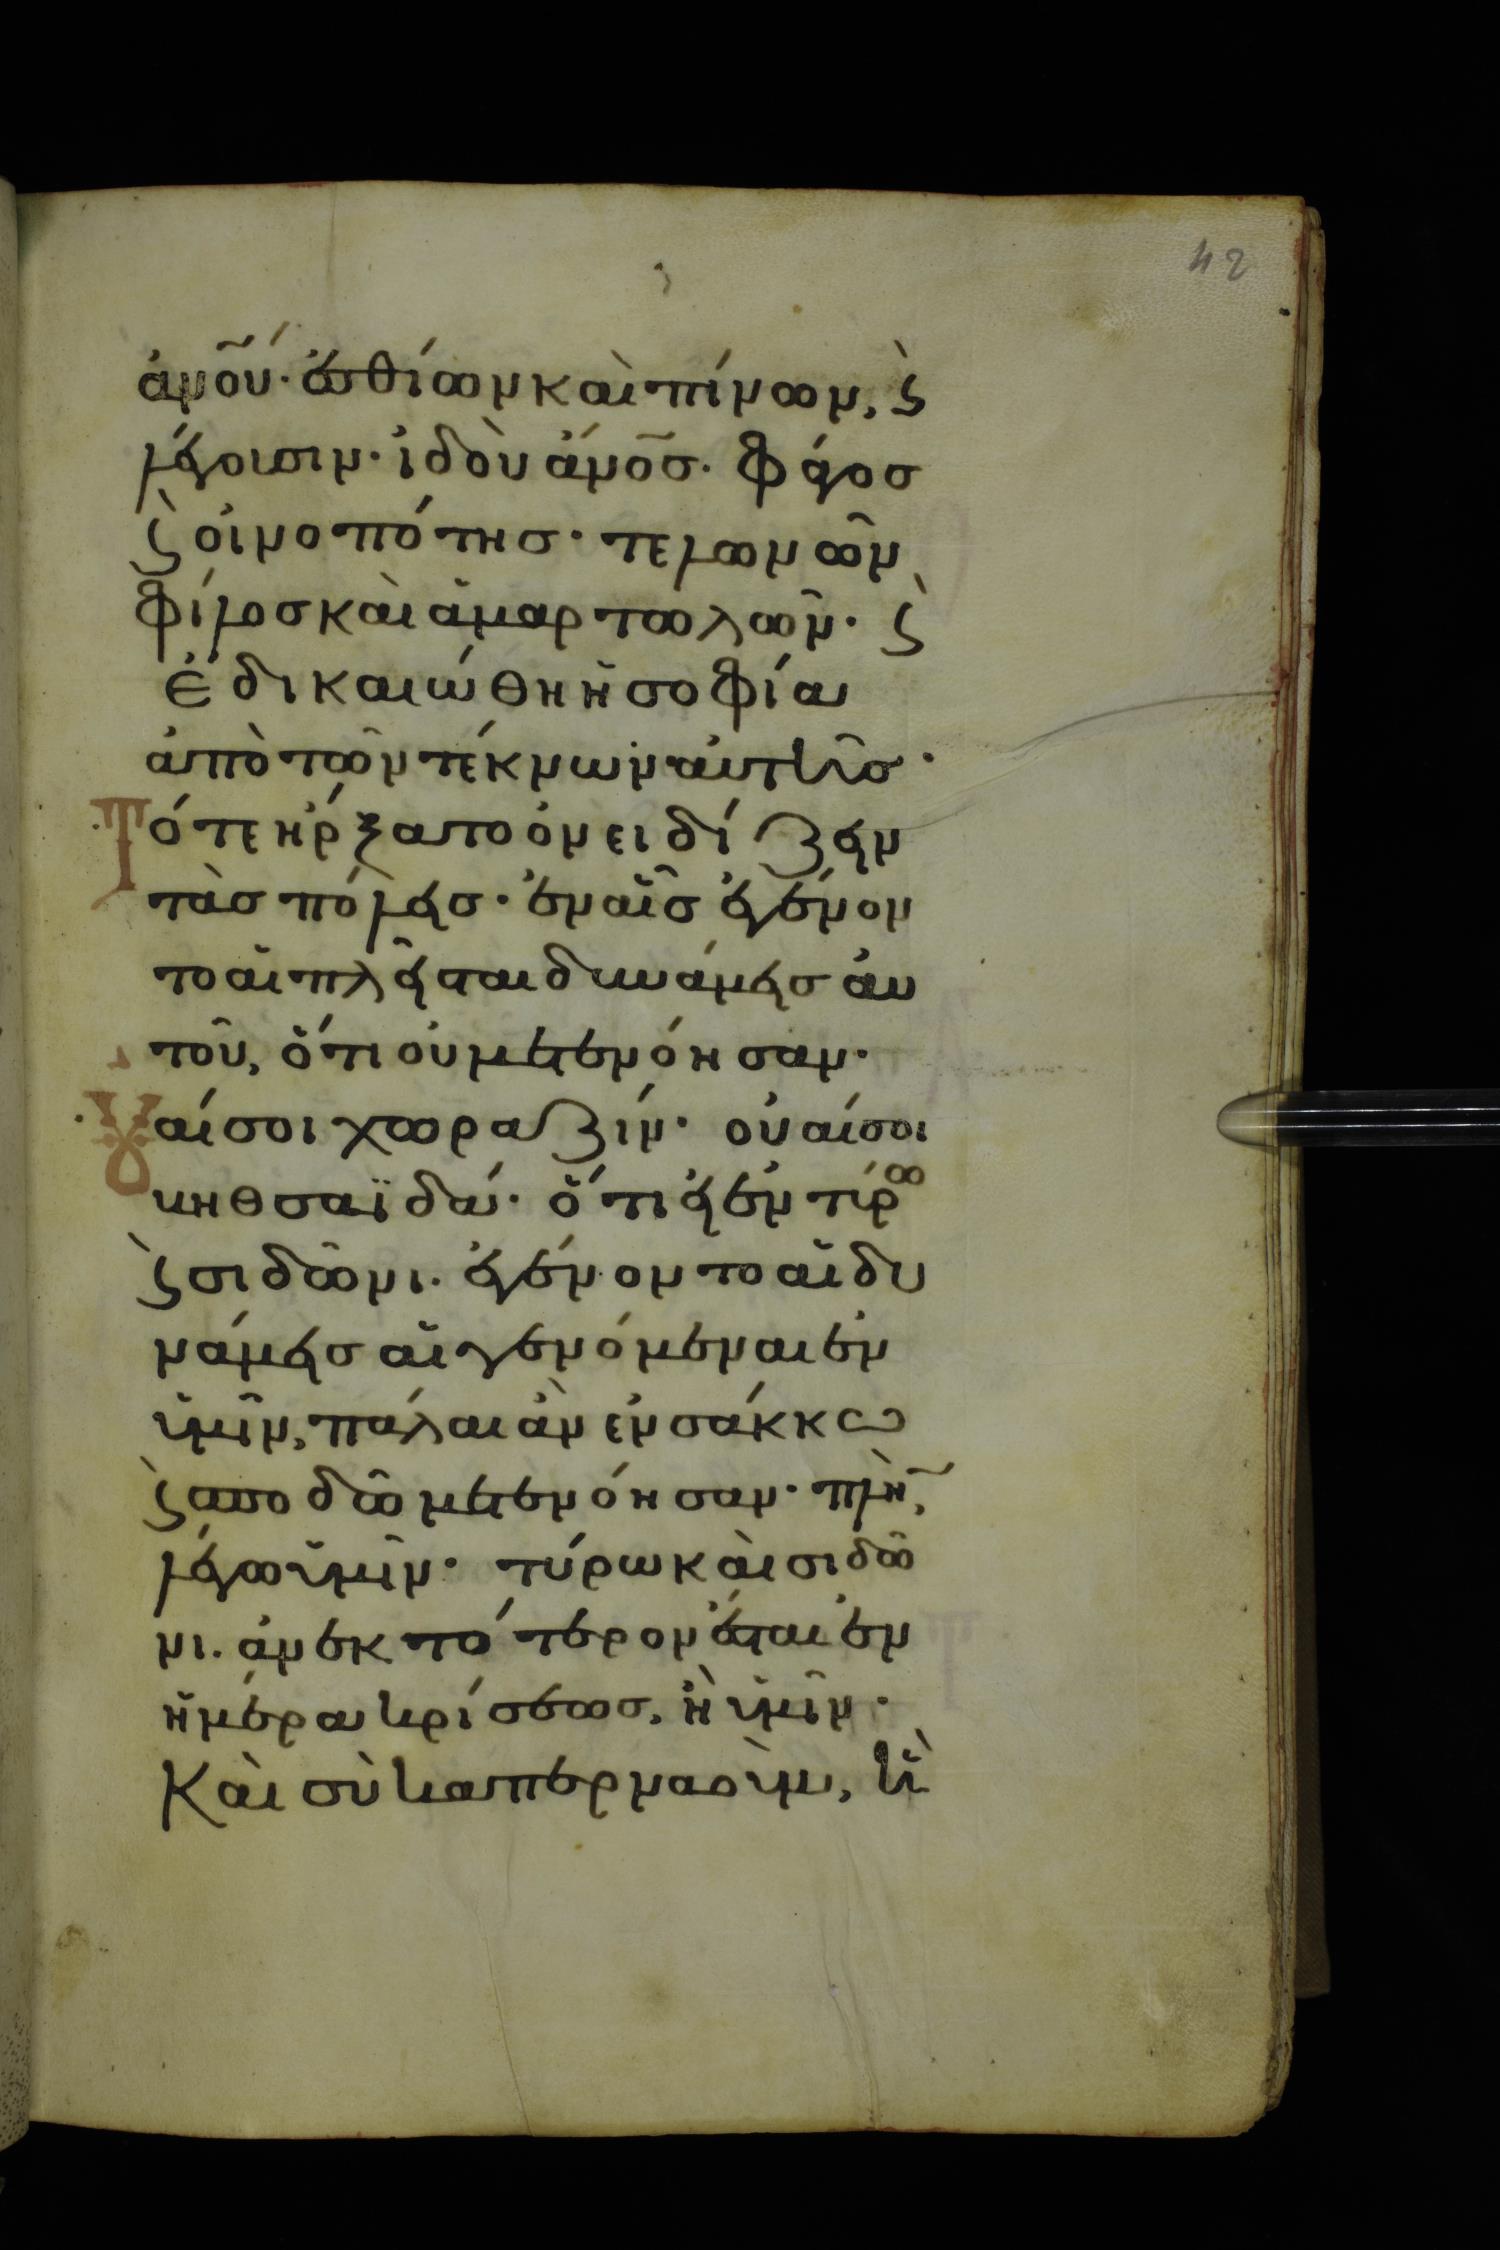 42
ἀν͞ου· ἐσθίων καὶ πίνων, ϛ
λέγουσιν· ἰδοὺ ἄν͞οσ· φάγοσ
ϛ̀ οἰνοπότησ· τελωνῶν
φίλοσ καὶ ἁμαρτωλῶν· ϛ̀
ἐδικαιώθη ἡ σοφία
ἀπὸ τῶν τέκνων αὐτῆσ·
Τότε ἤρξατο ὀνειδίζειν
τὰσ πόλεισ· ἐν αἷσ ἐγένον
το αἱ πλεῖσται δυνάμεισ αὐ
τοῦ, ὅτι οὐ μετενόησαν·
Οὐαί σοι χωραζίν· οὐαί σοι
βηθσαϊδά· ὅτι εἰ ἐν τύρω
ϛ̀ σιδῶνι· ἐγένοντο αἱ δυ
νάμεισ αἱ γενόμεναι ἐν
ὑμῖν, πάλαι ἂν ἐν σάκκω
ϛ̀ σποδῶ μετενόησαν· πλὴν,
λέγω ὑμῖν· τύρω καὶ σιδῶ
νι· ἀνεκτότερον ἔσται ἐν
ἡμέρα κρίσεωσ, ἢ ὑμῖν·
Καὶ σὺ καπερναούμ, ἡ